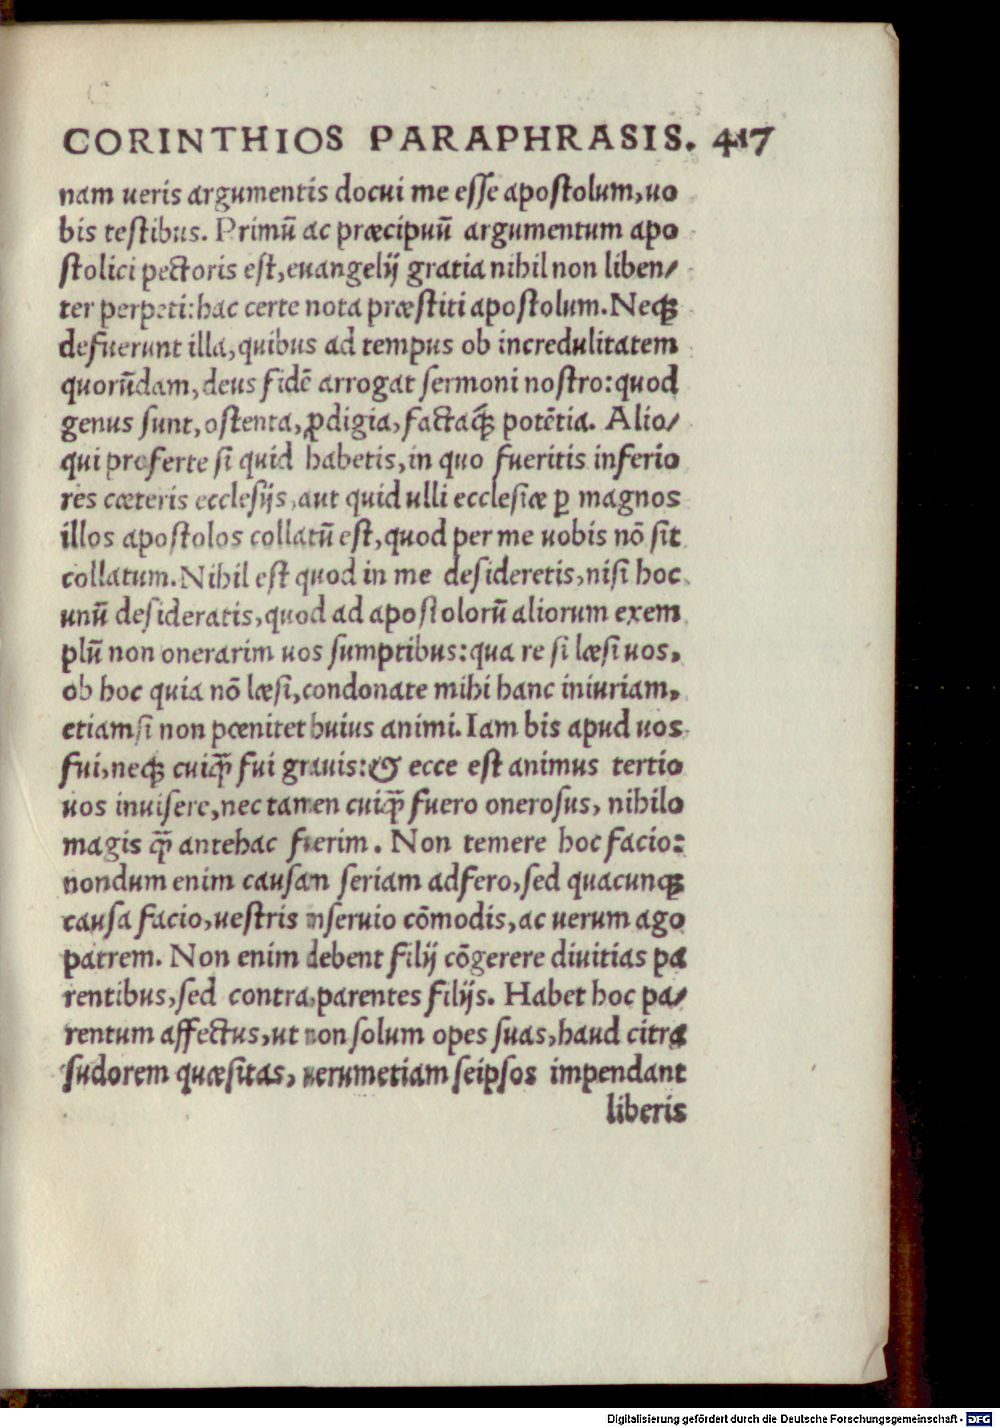 CORINTHIOS PARAPHRASIS. 417
nam ueris argumentis docui me eſſe apoſtolum, uo
bis teſtibus. Primū ac præcipuū argumentum apo
ſtolici pectoris eſt, euangelij gratia nihil non liben/
ter perpeti: hac certe nota præſtiti apoſtolum. Neqꝫ
defuerunt illa, quibus ad tempus ob incredulitatem
quorūdam, deus fidē arrogat ſermoni noſtro: quod
genus ſunt, oſtenta, ꝓdigia, factaqꝫ́ potētia. Alio/
qui proferte ſi quid habetis, in quo fueritis inferio
res cæteris eccleſijs, aut quid ulli eccleſiæ ꝑ magnos
illos apoſtolos collatū eſt, quod per me uobis nō ſit
collatum. Nihil eſt quod in me deſideretis, niſi hoc
unū deſideratis, quod ad apoſtolorū aliorum exem
plū non onerarim uos ſumptibus: qua re ſi læſi uos,
ob hoc quia nō læſi, condonate mihi hanc iniuriam,
etiamſi non pœnitet huius animi. Iam bis apud uos
fui, neqꝫ cuiq̄ fui grauis: & ecce eſt animus tertio
uos inuiſere, nec tamen cuiq̄ fuero oneroſus, nihilo
magis q̄ antehac fuerim. Non temere hoc facio:
nondum enim cauſam ſeriam adfero, ſed quacunqꝫ
cauſa facio, ueſtris inſeruio cōmodis, ac uerum ago
patrem. Non enim debent filij cōgerere diuitias pa
rentibus, ſed contra, parentes filijs. Habet hoc pa/
rentum affectus, ut non ſolum opes ſuas, haud citra
ſudorem quæſitas, uerumetiam ſeipſos impendant
liberis
Digitalisierung gefördert durch die Deutsche Forschungsgemeinschaft - DFG